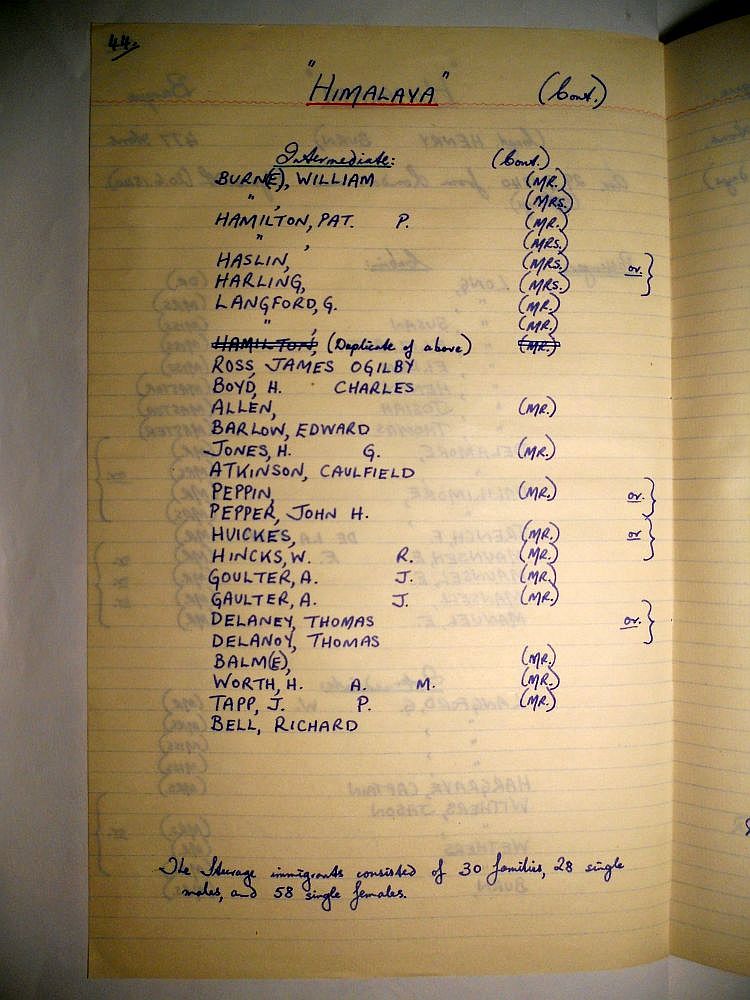 44.
"HIMALAYA" (Cont.)
Intermediate: (Cont.)
BURN(E), WILLIAM (MR.)
" , (MRS.)
HAMILTON, PAT. P. (MR.)
" , (MRS.)
HASLIN, (MRS.) or.
HARLING, (MRS.)
LANGFORD, G. (MR.)
" , (MR.)
HAMILTON, (Duplicate of above) (MR.)
ROSS, JAMES OGILBY
BOYD, H. CHARLES
ALLEN, (MR.)
BARLOW, EDWARD
JONES, H. G. (MR.)
ATKINSON, CAULFIELD
PEPPIN, (MR.) or.
PEPPER, JOHN H.
HUICKES, (MR.) or
HINCKS, W. R. (MR.)
GOULTER, A. J. (MR.)
GAULTER, A. J. (MR.)
DELANEY, THOMAS or.
DELANOY, THOMAS
BALM(E), (MR.)
WORTH, H. A. M. (MR.)
TAPP, J. P. (MR.)
BELL, RICHARD
The Steerage immigrants consisted of 30 families, 28 single
males, and 58 single females.